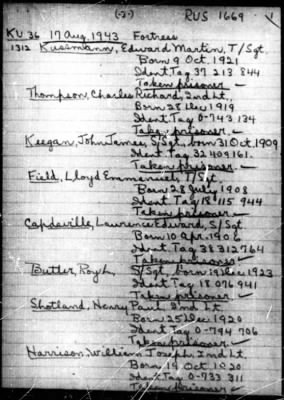 (-2-) RUS 1669
KU 36 17 Aug. 1943 Fortress
1312 Kussmann, Edward Martin, T/Sgt.
Born 9 Oct. 1921
Ident. Tag 37 213 844
Taken prisoner
Thompson, Charles Richard, 2nd Lt.
Born 28 Dec 1919
Ident. Tag 0-743 134
Taken prisoner
Keegan, John James, S/Sgt, born 31 Oct. 1909
Ident Tag 32 409 161.
Taken prisoner.
Field, Lloyd Emmanuel, T/Sgt.
Born 28 July 1908
Ident. Tag 18 115 944
Taken prisoner.
Capdeville, Laurence Edward, S/Sgt
Born 10 Apr. 1906
Ident Tag 38 312 764
Taken prisoner
Butler, Roy L. S/Sgt, born 19 Dec 1923
Ident Tag 18 076 941
Taken prisoner.
Shotland, Henry Paul 2nd Lt
Born 25 Dec 1920
Ident Tag 0-794 706
Taken prisoner.
Harrison, William Joseph, 2nd Lt.
Born 19 Oct 1920
Ident. Tag 0-733 311
Taken prisoner